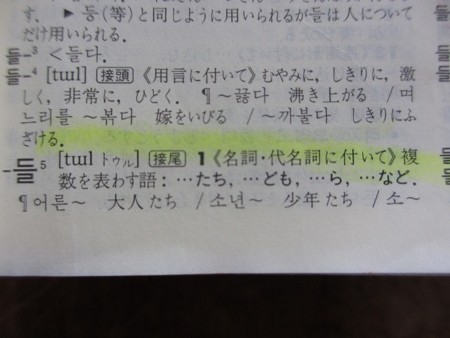 す. ▶ 등(等)と同じように用いられるが들は人について
だけ用いられる.
들-³ <들다.
들-⁴ [tɯl] [接頭] 《用言に付いて》むやみに, しきりに, 激
しく, 非常に, ひどく. ¶～끓다 沸き上がる / 며
느리를 ～볶다 嫁をいびる / ～까불다 しきりにふ
ざける.
-들⁵ [tɯl トゥル] [接尾] 1《名詞・代名詞に付いて》複
数を表わす語 : …たち, …ども, …ら, …など.
¶어른～ 大人たち / 소년～ 少年たち / 소～